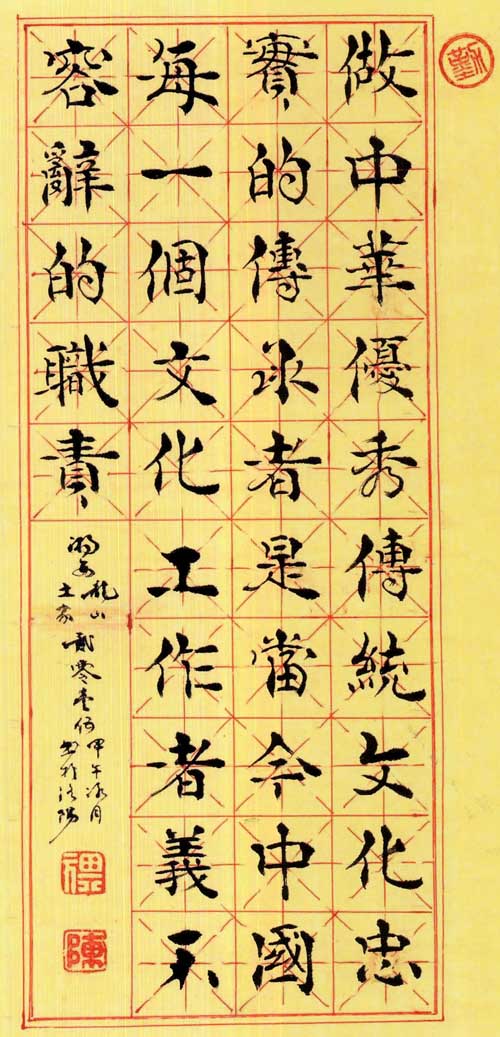 做中華優秀傳統文化忠
實的傳承者是當今中國
每一個文化工作者義不
容辭的職責
湖南龍山
土家
貳零壹伍
甲午 月
陳